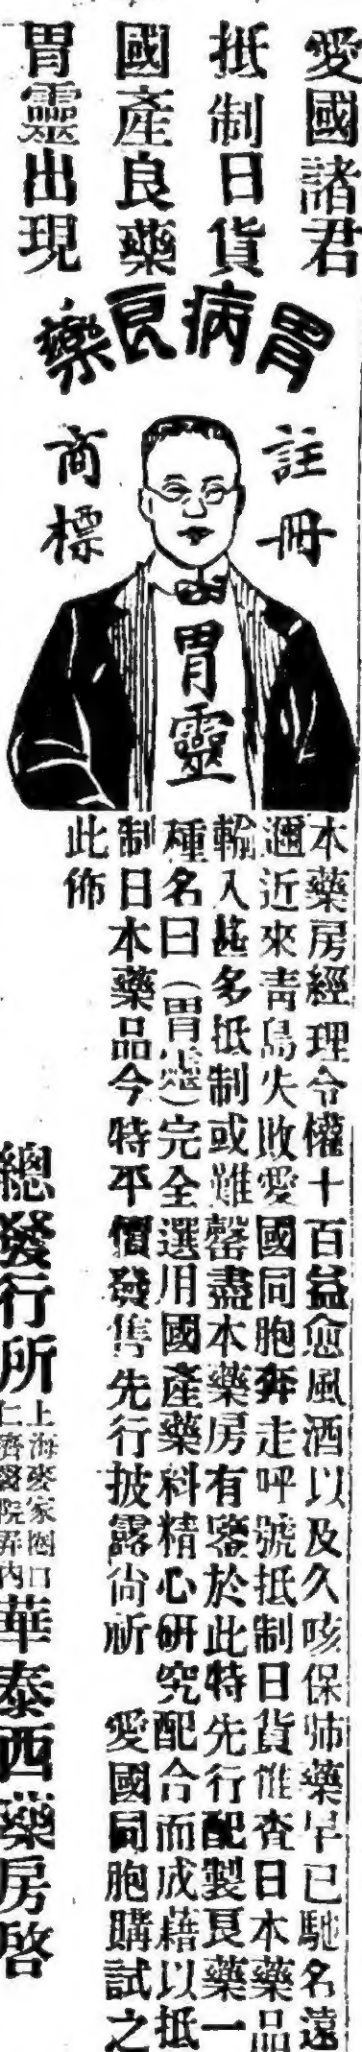 愛國諸君
抵制日貨
國產良藥
胃靈出現
胃病良藥
註冊
商標
胃靈
本藥房經理令權十百益愈風酒以及久咳保肺藥早已馳名遠
邇近來青島失敗愛國同胞奔走呼號抵制日貨惟查日本藥品
輸入甚多抵制或難罄盡本藥房有鑒於此特先行配製良藥一
種名曰（胃靈）完全選用國產藥料精心研究配合而成藉以抵
制日本藥品今特平價發售先行披露尚祈　愛國同胞購試之
此佈
總發行所
上海麥家圈口
仁濟醫院弄內
華泰西藥房啓